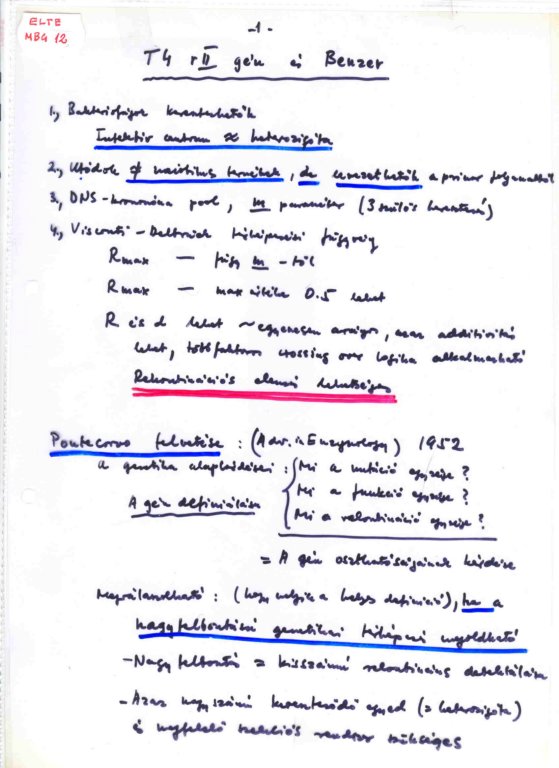 ELTE
MBG 12
-1-
T4 rII gén és Benzer
1., Bakteriofágok keresztezhetők
Infektív centrum ≈ heterozigóta
2., Utódok ≠ meiotikus termékek, de levezethetők a primer
3., DNS-kromoszóma pool, m paraméter (3 szülős keresztezés)
4., Visconti-Delbrück térképezési függvény
Rmax — függ m-től
Rmax — max értéke 0.5 lehet
R és d lehet ~ egyenesen arányos, azaz additivitás
lehet, többfaktoros crossing over logika alkalmazható
Rekombinációs elemzés lehetséges
Pontecorvo felvetése : (Adv. in Enzymology) 1952
a genetika alapkérdései : Mi a mutáció egysége ?
Mi a funkció egysége ?
A gén definiálása
Mi a rekombináció egysége ?
= A gén oszthatóságának kérdése
Megválaszolható : (hogy melyik a helyes definíció), ha a
nagyfelbontású genetikai térképezés megoldható
- Nagy felbontás = kisszámú rekombináns detektálása
- Azaz nagyszámú kereszteződő egyed (= heterozigóta)
és megfelelő szelekciós rendszer szükséges